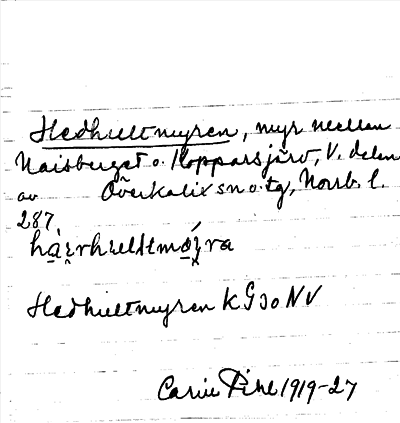 Hedhultmyren, myr mellan
Naisberget o. Kopparsjärv, V. delen
av Överkalix sn o. tg, Norrb. l.
287.
Hedhultmyren K G30 NV
Carin Pihl 1919-27